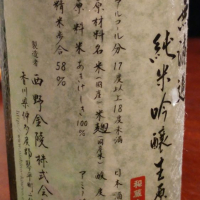 無濾過
純米吟醸生原
アルコール分 17度以上18度未満
日本酒
原材料名 米(国産)・米麹(国産米)
酸度
原料米 あきげしき100%
アミノ
精米歩合 58%
製造者 西野金陵株式会
香川県仲多度郡琴平町